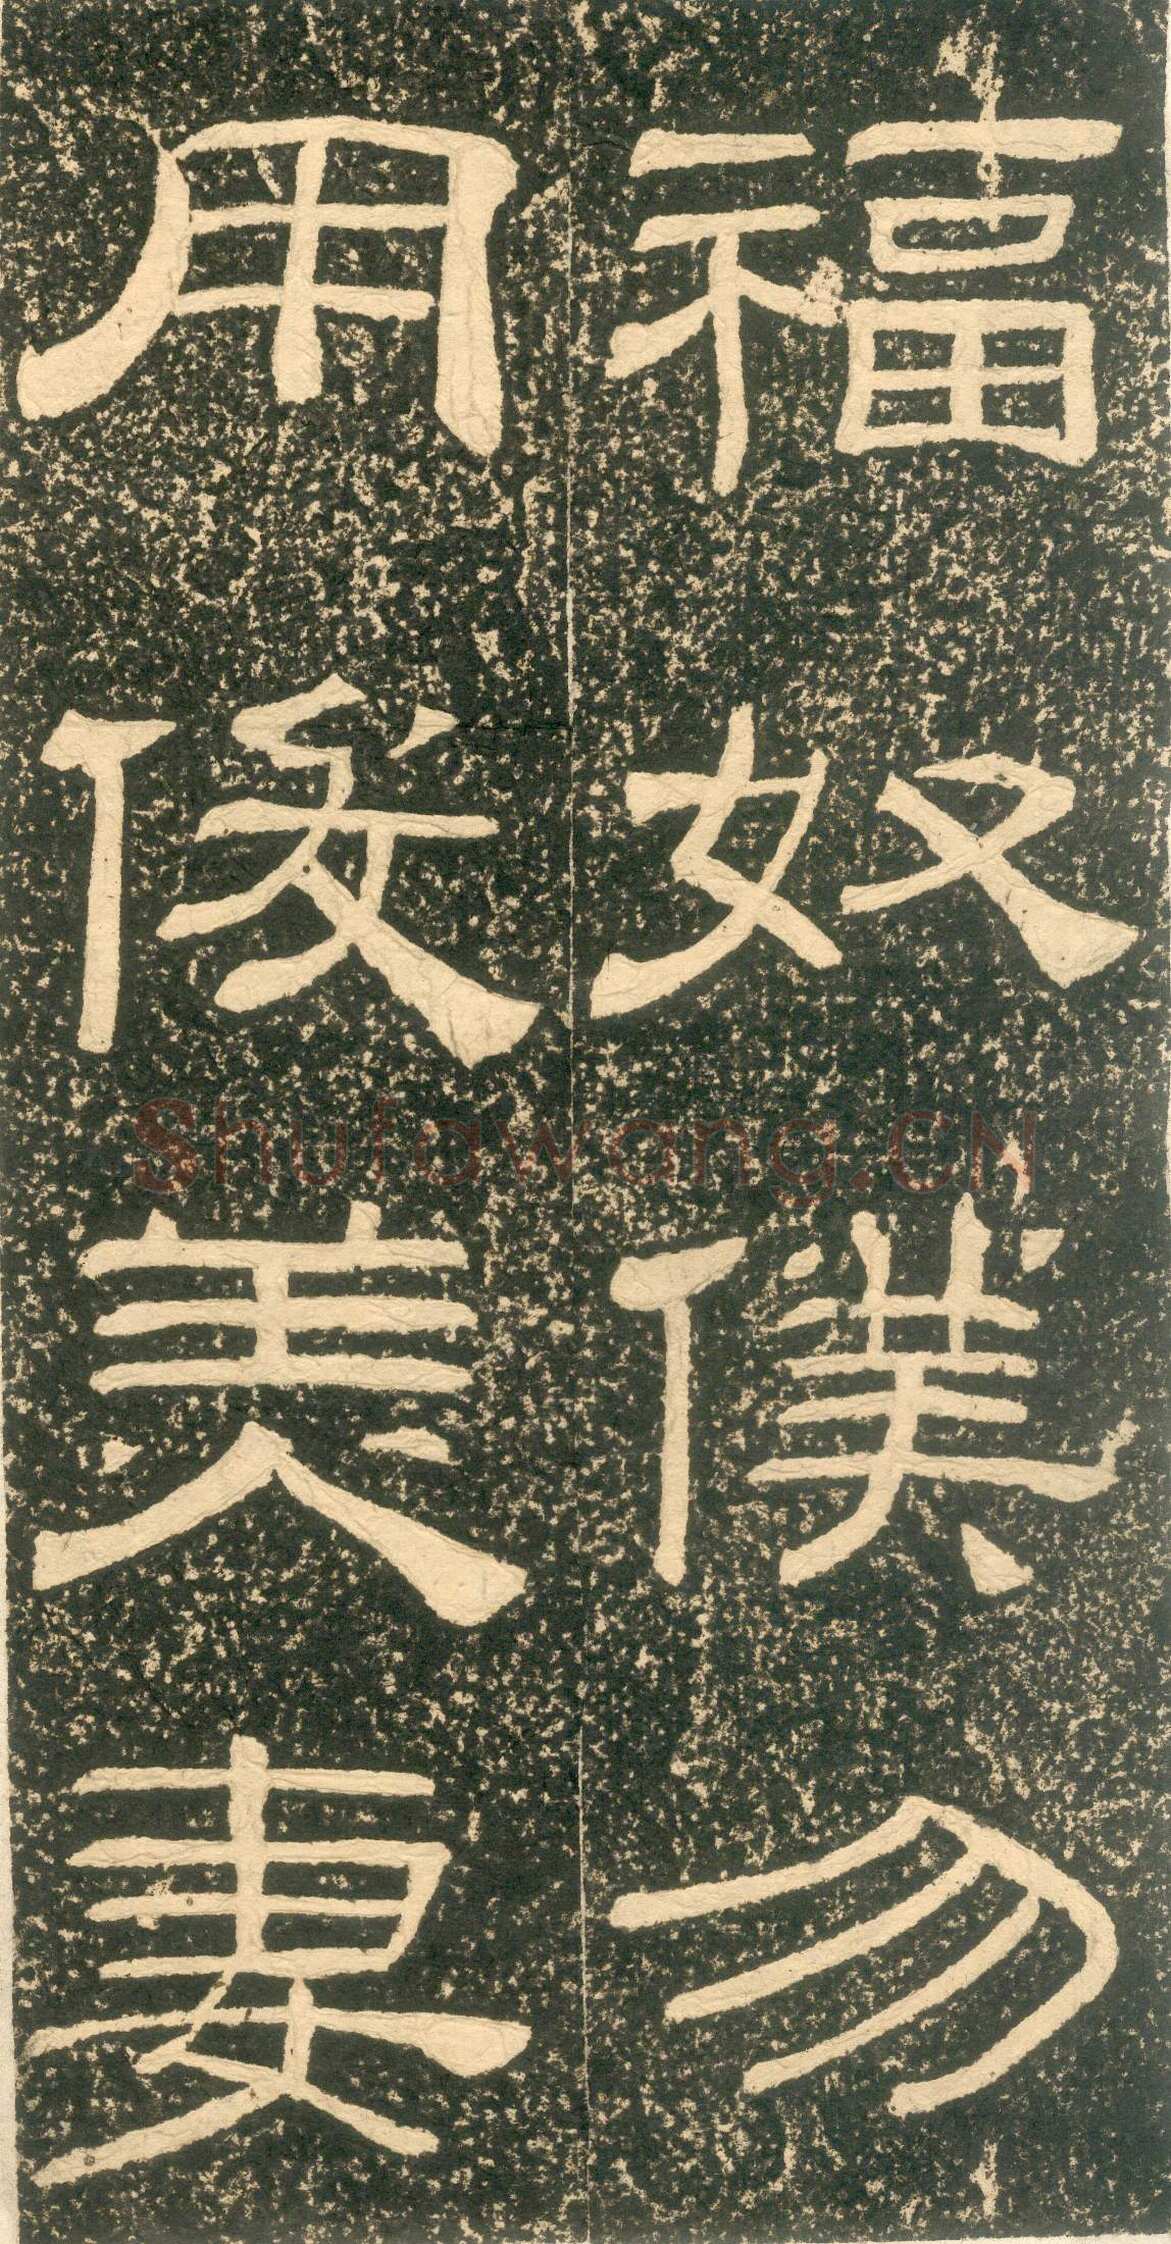 福奴僕勿
用俊美妻
Shufawang.CN